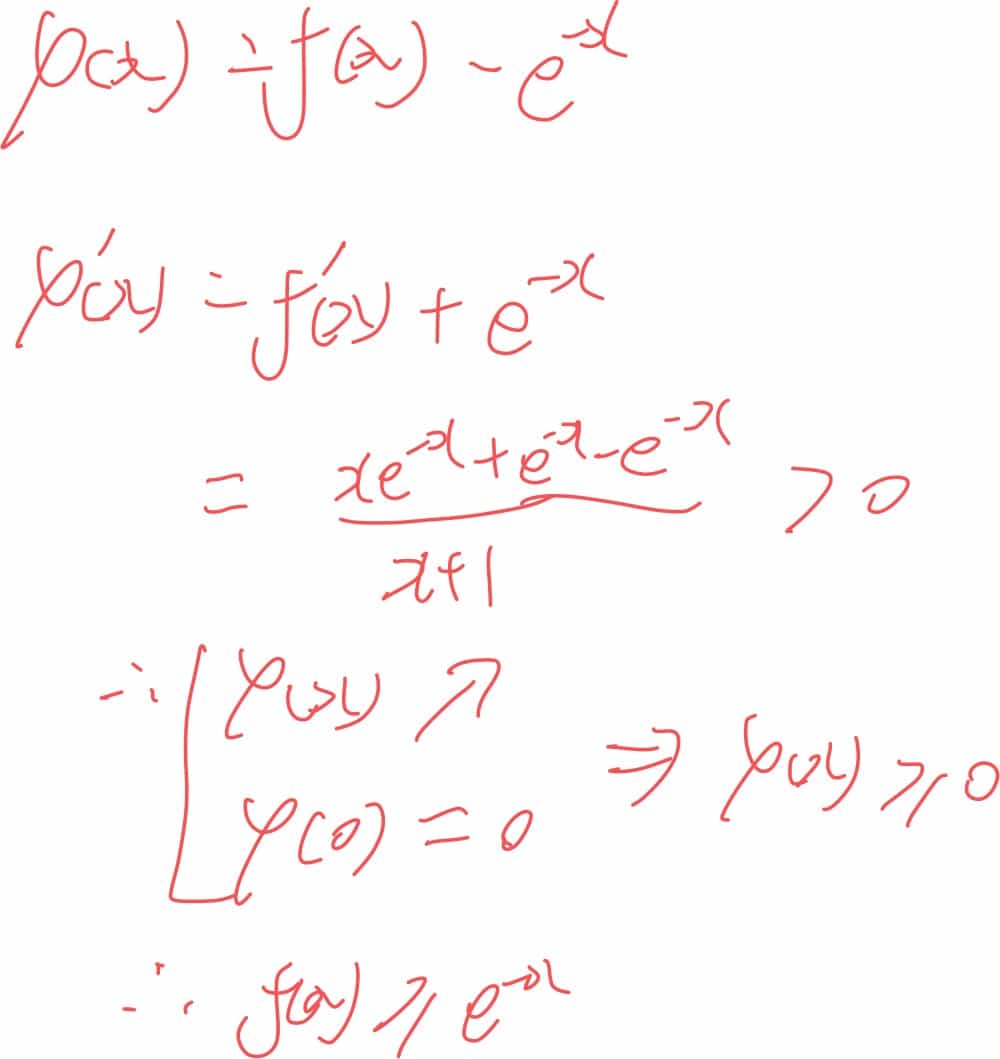 φ(x) = f(x) - e^{-x}
φ'(x) = f'(x) + e^{-x}
= \frac{xe^{-x} + e^{-x} - e^{-x}}{x+1} > 0
∴ { φ(x) ↗
φ(0) = 0 ⇒ φ(x) ≥ 0
∴ f(x) ≥ e^{-x}